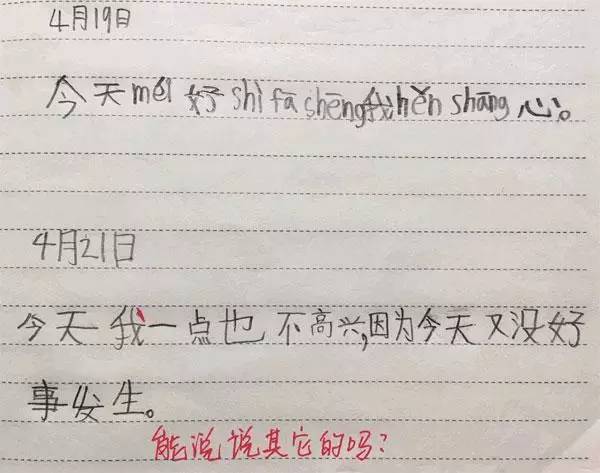 4月19日
今天méi好shì fā shēng我hěn shāng心。
4月21日
今天我一点也不高兴,因为今天又没好
事发生。
能说说其它的吗?